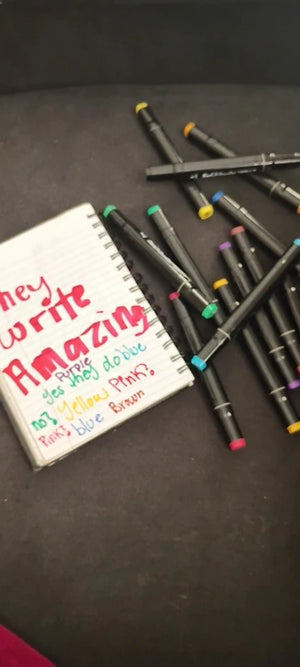 they
write
Amazing
Purple
yes they do blue
no? yellow Pink?
Pink? blue Brown